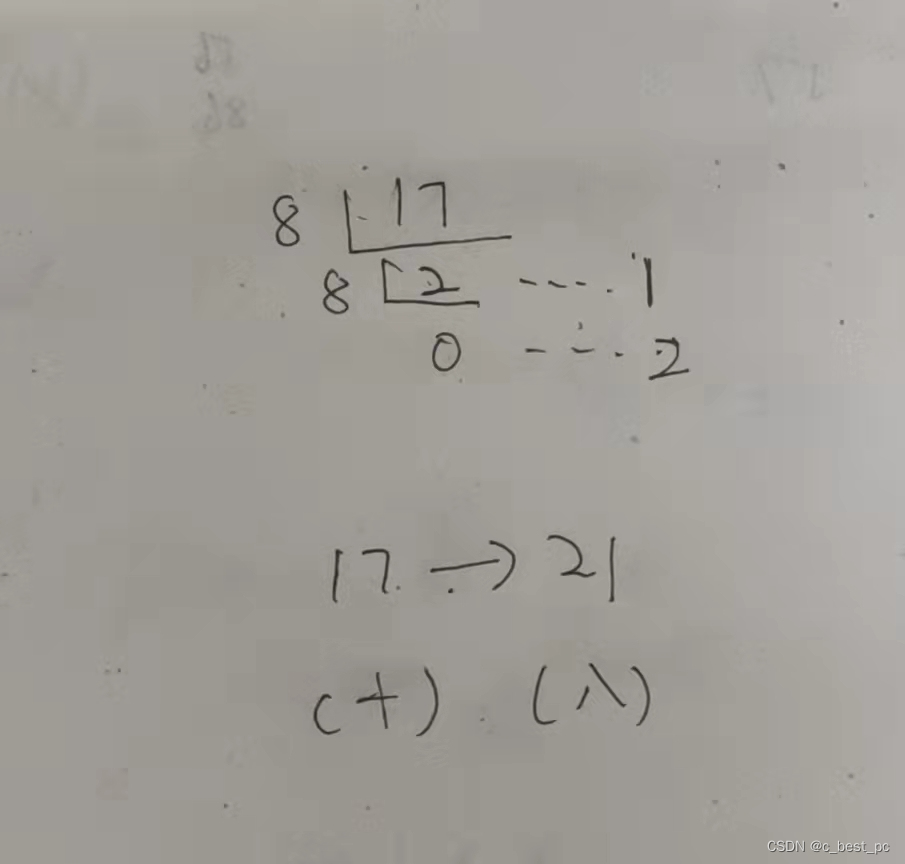 8 17
8 2 ---- 1
0 ---- 2
17 → 21
(十) (八)
CSDN @c_best_pc